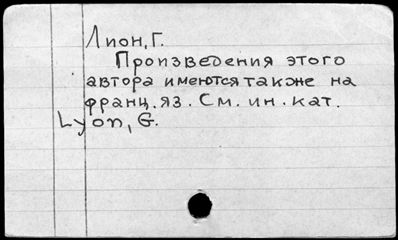 Лион, Г.
Произведения этого
автора имеются также на
франц. яз. См. ин. кат.
Lyon, G.